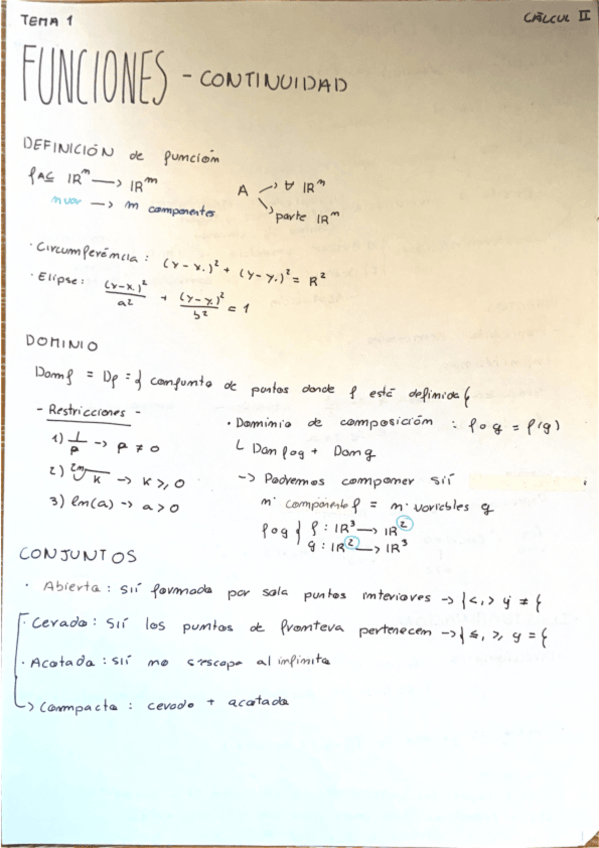 TEMA 1
CÀLCUL II
FUNCIONES - CONTINUIDAD
DEFINICIÓN de función
f A⊆ ℝⁿ → ℝᵐ
n var → m componentes
A → ∀ ℝⁿ
↘ parte ℝⁿ
· Circumferéncia : (x-x.)² + (y-y.)² = R²
· Elipse : (x-x.)²/a² + (y-y.)²/b² = 1
DOMINIO
Domf = Df = { conjunto de puntos donde f está definida {
- Restricciones -
1) 1/P → P ≠ 0
2) ²ⁿ√K → K ≥ 0
3) ln(a) → a > 0
· Dominio de composición : f o g = f(g)
└ Dom fog + Dom g
→ Podremos componer sií
nº componente f = nº variables g
f o g { f : ℝ³ → ℝ²
g : ℝ² → ℝ³
CONJUNTOS
· Abierta : sií formado por solo puntos interiores → { <, > y ≠ {
· Cerado : sií los puntos de frontera pertenecen → { ≤, ≥, y = {
· Acotada : sií no s'escapa al infinito
→ Compacta : cerado + acotado